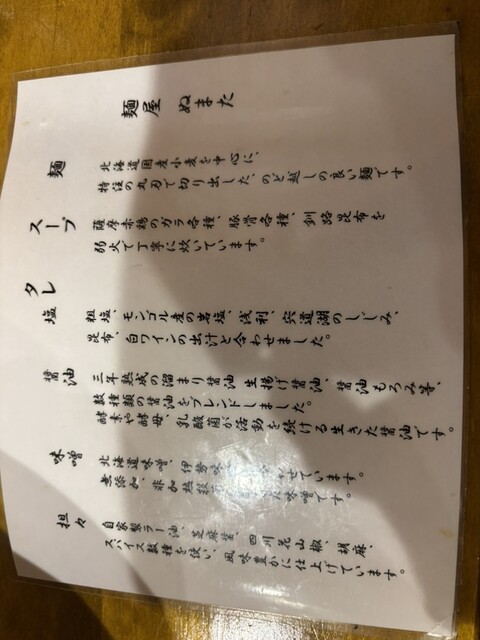 麺屋 ぬまた
麺
北海道国産小麦を中心に、
特注の丸刃で切り出した、のど越しの良い麺です。
スープ
薩摩赤鶏のガラ各種、豚骨各種、釧路昆布を
弱火で丁寧に炊いています。
タレ
塩
粗塩、モンゴル産の岩塩、浅利、宍道湖のしじみ、
昆布、白ワインの出汁と合わせました。
醤油
三年熟成の溜まり醤油 生揚げ醤油、醤油もろみ等、
数種類の醤油をブレンドしました。
酵素や酵母、乳酸菌が活動を続ける生きた醤油です。
味噌
北海道味噌、伊勢味 せています。
無添加、非加熱 味噌です。
担々
自家製ラー油、芝麻醤、四川花山椒、胡麻、
スパイス数種を使い、風味豊かに仕上げています。